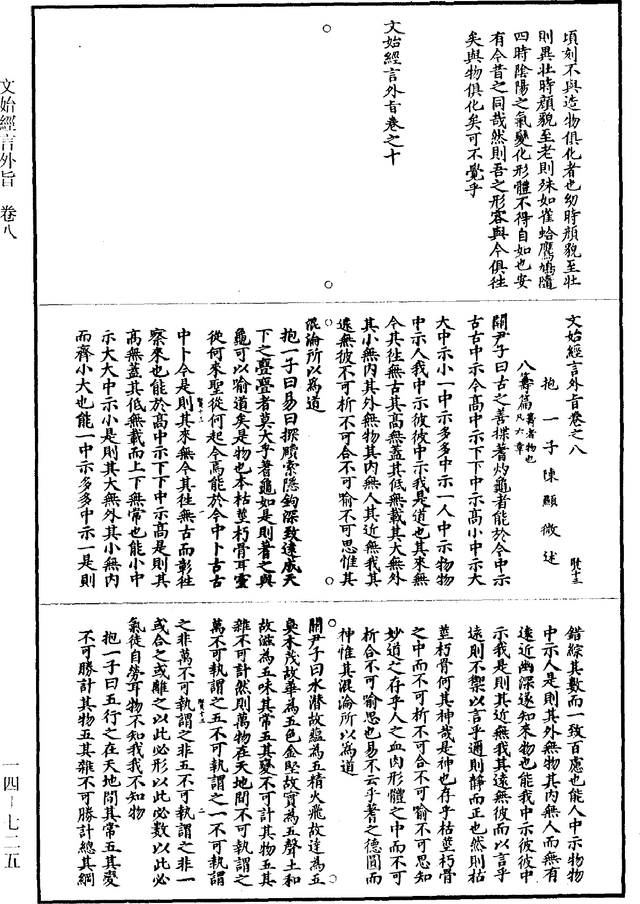 頃刻不與造物俱化者也幼時顏貌至壯
則異壯時顏貌至老則殊如雀蛤鷹鳩隨
四時陰陽之氣變化形體不得自如也安
有今昔之同哉然則吾之形容與今俱往
矣與物俱化矣可不覺乎
文始經言外旨卷之十
文始經言外旨卷之八
賢十三
抱一子陳顯微述
八籌篇
籌者物也
凡六章
關尹子曰古之善揲蓍灼龜者能於今中示
古古中示今高中示下下中示高小中示大
大中示小一中示多多中示一人中示物物
中示人我中示彼彼中示我是道也其來無
今其往無古其高無蓋其低無載其大無外
其小無內其外無物其內無人其近無我其
遠無彼不可析不可合不可喻不可思惟其
混淪所以為道
抱一子曰易曰探賾索隱鉤深致遠成天
下之亹亹者莫大乎蓍龜如是則蓍之與
龜可以喻道矣是物也本枯莖朽骨耳靈
從何來聖從何起今焉能於今中卜古古
中卜今是則其來無今其往無古而彰往
察來也能於高中示下下中示高是則其
高無蓋其低無載而上下無常也能小中
示大大中示小是則其大無外其小無內
而齊小大也能一中示多多中示一是則
錯綜其數而一致百慮也能人中示物物
中示人是則其外無物其內無人而無有
遠近幽深遂知來物也能我中示彼彼中
示我是則其近無我其遠無彼而以言乎
遠則不禦以言乎邇則靜而正也然則枯
莖朽骨何其神哉是神也存乎枯莖朽骨
之中而不可析不可合不可喻不可思知
妙道之存乎人之血肉形體之中而不可
析合不可喻思也易不云乎蓍之德圓而
神惟其混淪所以為道
關尹子曰水潛故蘊為五精火飛故達為五
臭木茂故華為五色金堅故實為五聲土和
故滋為五味其常五其變不可計其物五其
雜不可計然則萬物在天地間不可執謂之
萬不可執謂之五不可執謂之一不可執謂
之非萬不可執謂之非五不可執謂之非一
或合之或離之以此必形以此必數以此必
氣徒自勞耳物不知我我不知物
抱一子曰五行之在天地間其常五其變
不可勝計其物五其雜不可勝計總其綱
文始經言外旨 卷八
一四－七二五